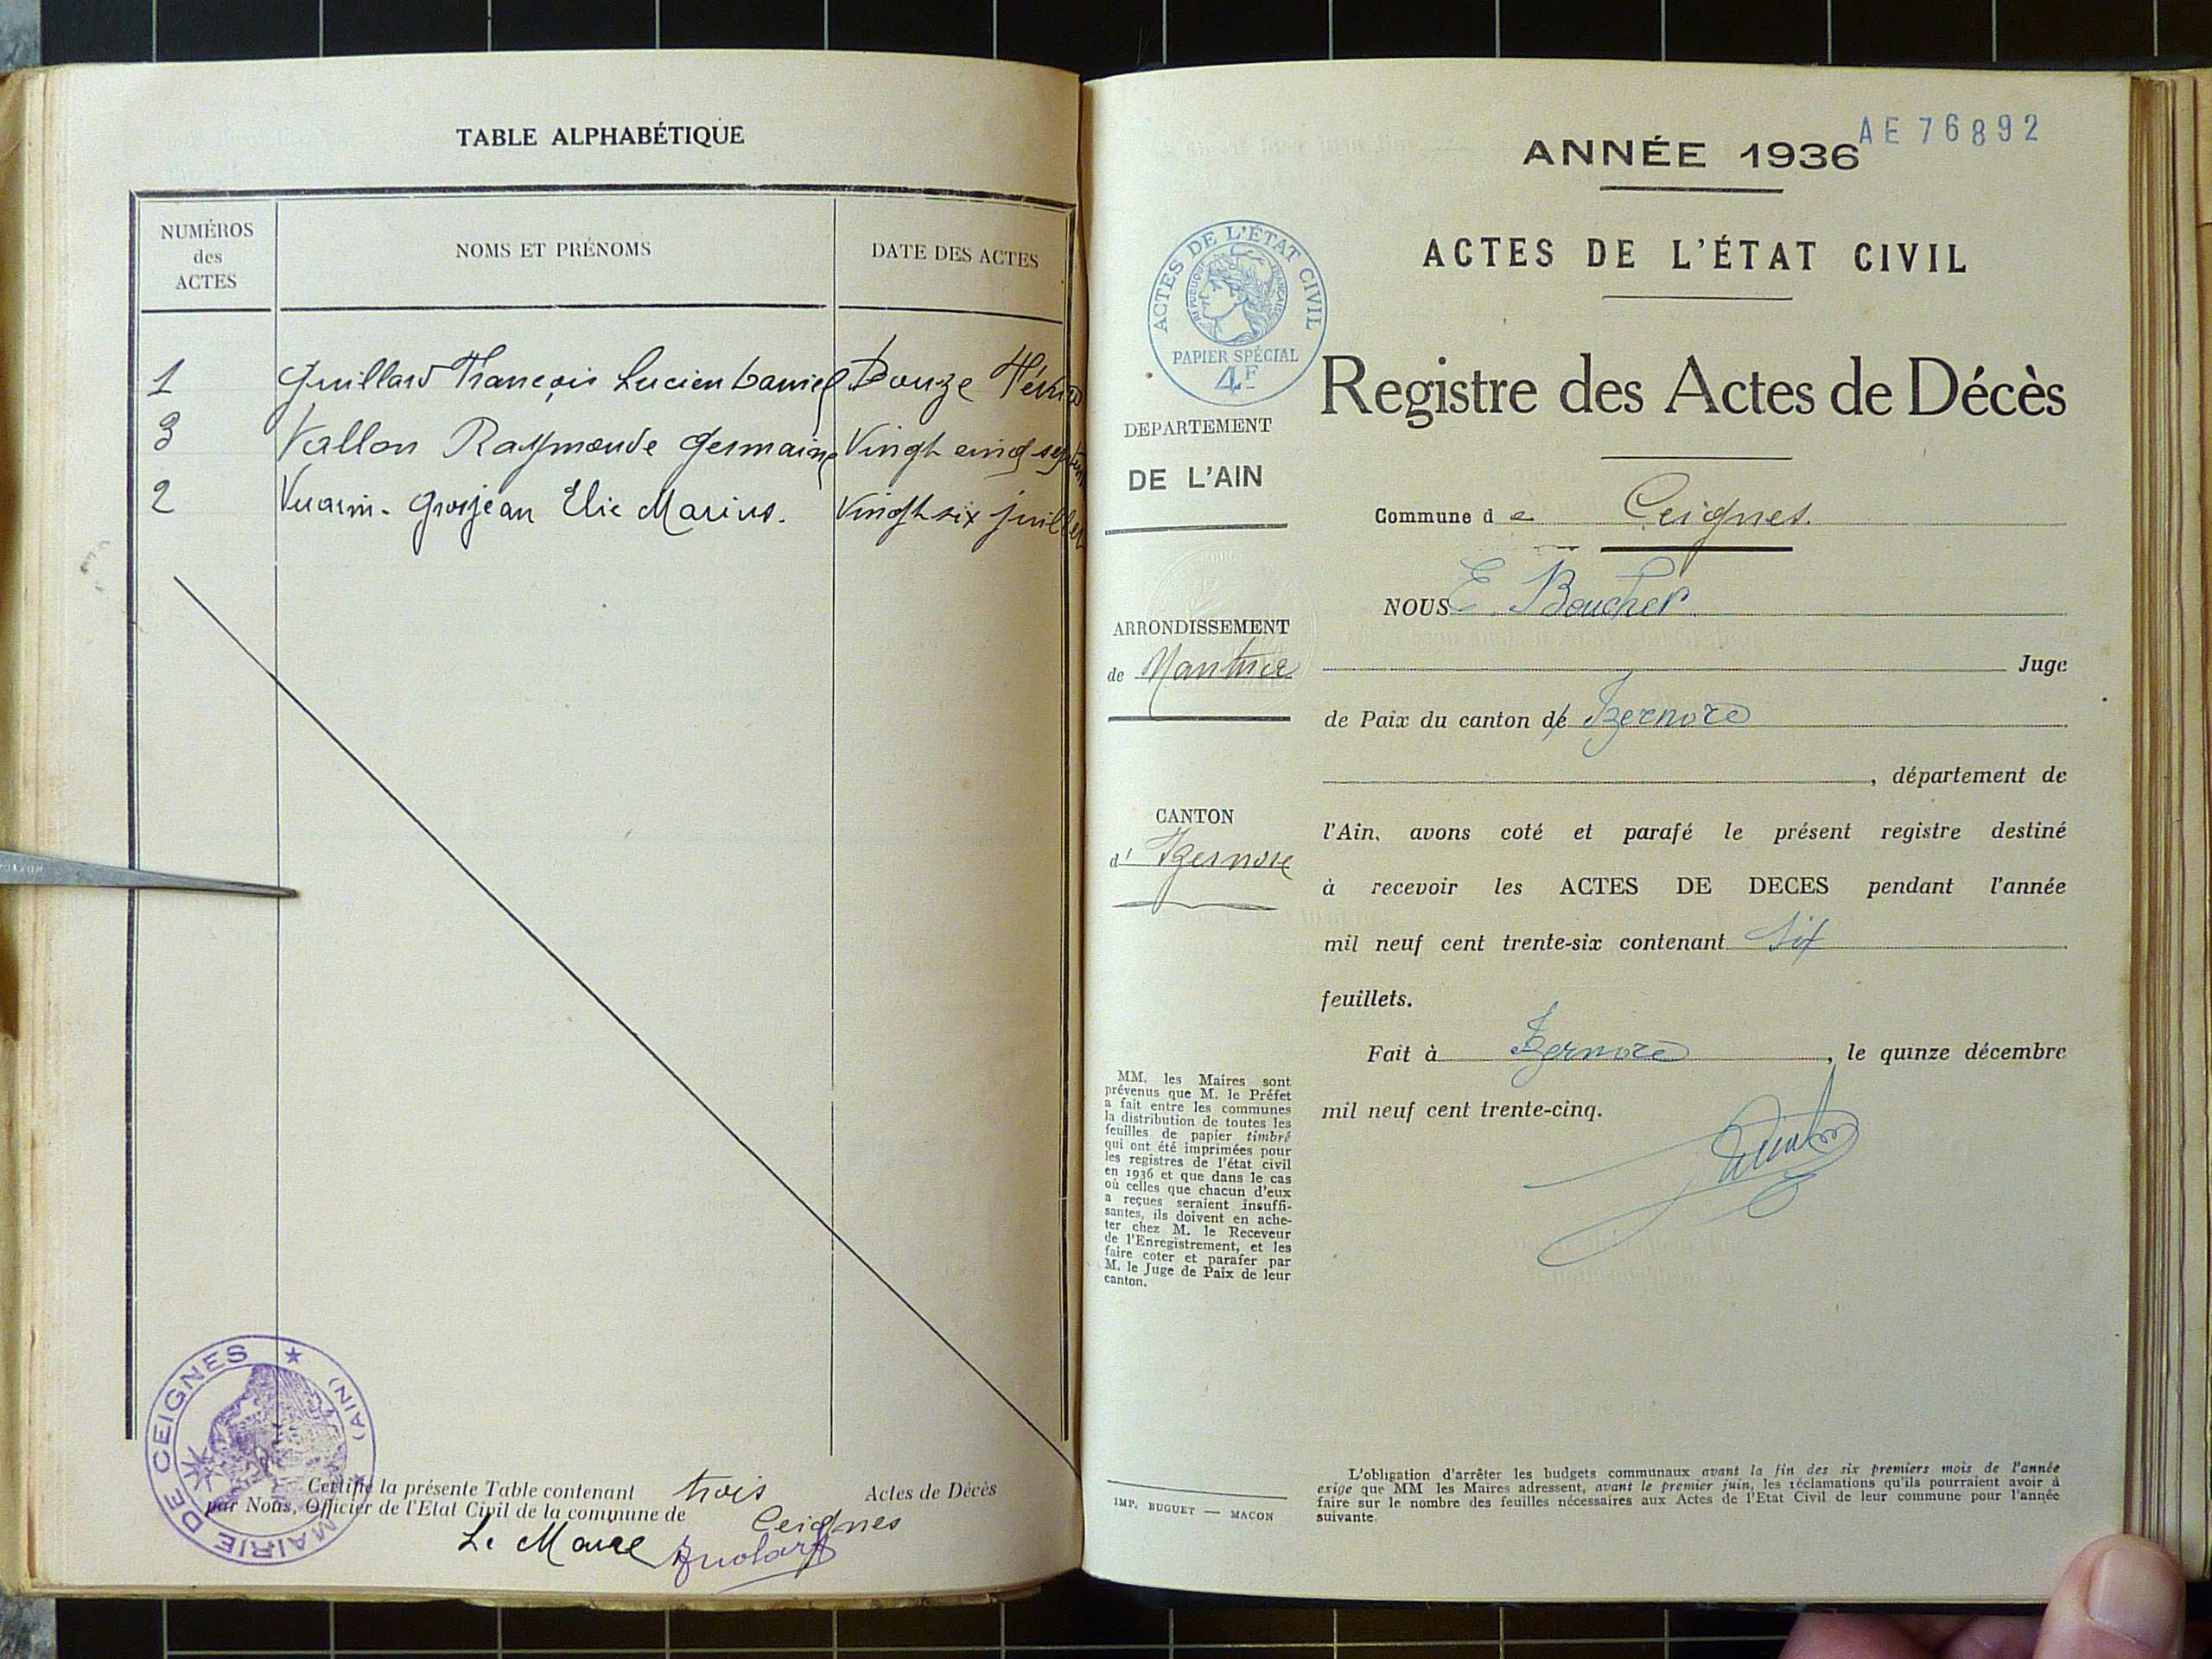 TABLE ALPHABÉTIQUE
NUMÉROS
des
ACTES
NOMS ET PRÉNOMS
DATE DES ACTES
1 Guillard François Lucien Daniel Douze
3 Vallon Raymonde Germaine Vingt cinq
2 Vuarin-Grosjean Elie Marius. Vingt six juillet
MAIRIE DE CEIGNES
(AIN)
Certifié la présente Table contenant trois Actes de Décès
par Nous, Officier de l'Etat Civil de la commune de Ceignes
Le Maire
AE 76892
ANNÉE 1936
ACTES DE L'ÉTAT CIVIL
Registre des Actes de Décès
ACTES DE L'ÉTAT CIVIL
RÉPUBLIQUE FRANÇAISE
PAPIER SPÉCIAL
4F
DEPARTEMENT
DE L'AIN
ARRONDISSEMENT
de Nantua
CANTON
d' Izernore
MM. les Maires sont
prévenus que M. le Préfet
a fait entre les communes
la distribution de toutes les
feuilles de papier timbré
qui ont été imprimées pour
les registres de l'état civil
en 1936 et que dans le cas
où celles que chacun d'eux
a reçues seraient insuffi-
santes, ils doivent en ache-
ter chez M. le Receveur
de l'Enregistrement, et les
faire coter et parafer par
M. le Juge de Paix de leur
canton.
IMP. BUGUET — MACON
Commune de Ceignes.
NOUS E. Boucher
Juge
de Paix du canton d' Izernore
, département de
l'Ain, avons coté et parafé le présent registre destiné
à recevoir les ACTES DE DECES pendant l'année
mil neuf cent trente-six contenant six
feuillets.
Fait à Izernore, le quinze décembre
mil neuf cent trente-cinq.
L'obligation d'arrêter les budgets communaux avant la fin des six premiers mois de l'année
exige que MM les Maires adressent, avant le premier juin, les réclamations qu'ils pourraient avoir à
faire sur le nombre des feuilles nécessaires aux Actes de l'Etat Civil de leur commune pour l'année
suivante.